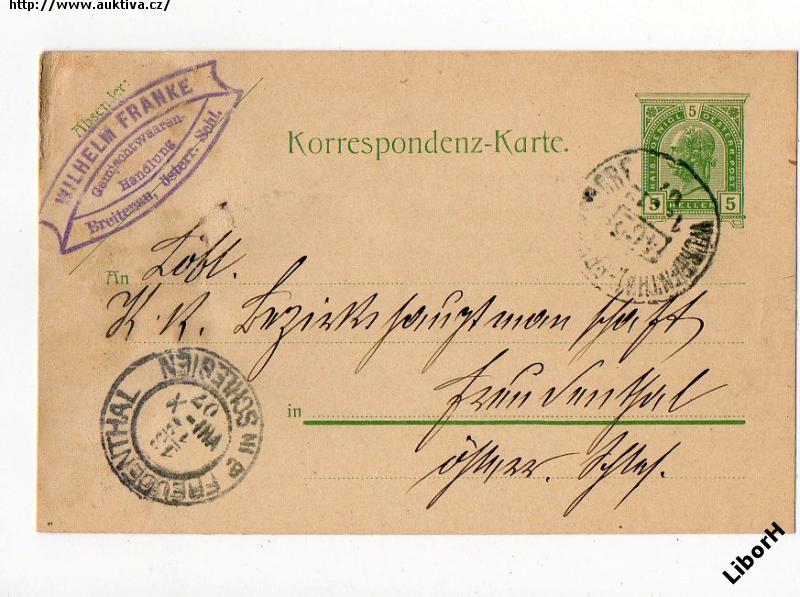 http://www.auktiva.cz/
Absender:
WILHELM FRANKE
Gemischtwaaren-
Handlung
Breitenau, österr. Schl.
Korrespondenz-Karte.
KAIS. KOENIGL. 5 OESTERR. POST
5 HELLER 5
WÜRBENTHAL
An Löbl.
K. K. Bezirkshauptmannschaft
in Freudenthal
österr. Schles.
FREUDENTHAL IN SCHLESIEN
VIII
X
07
LiborH